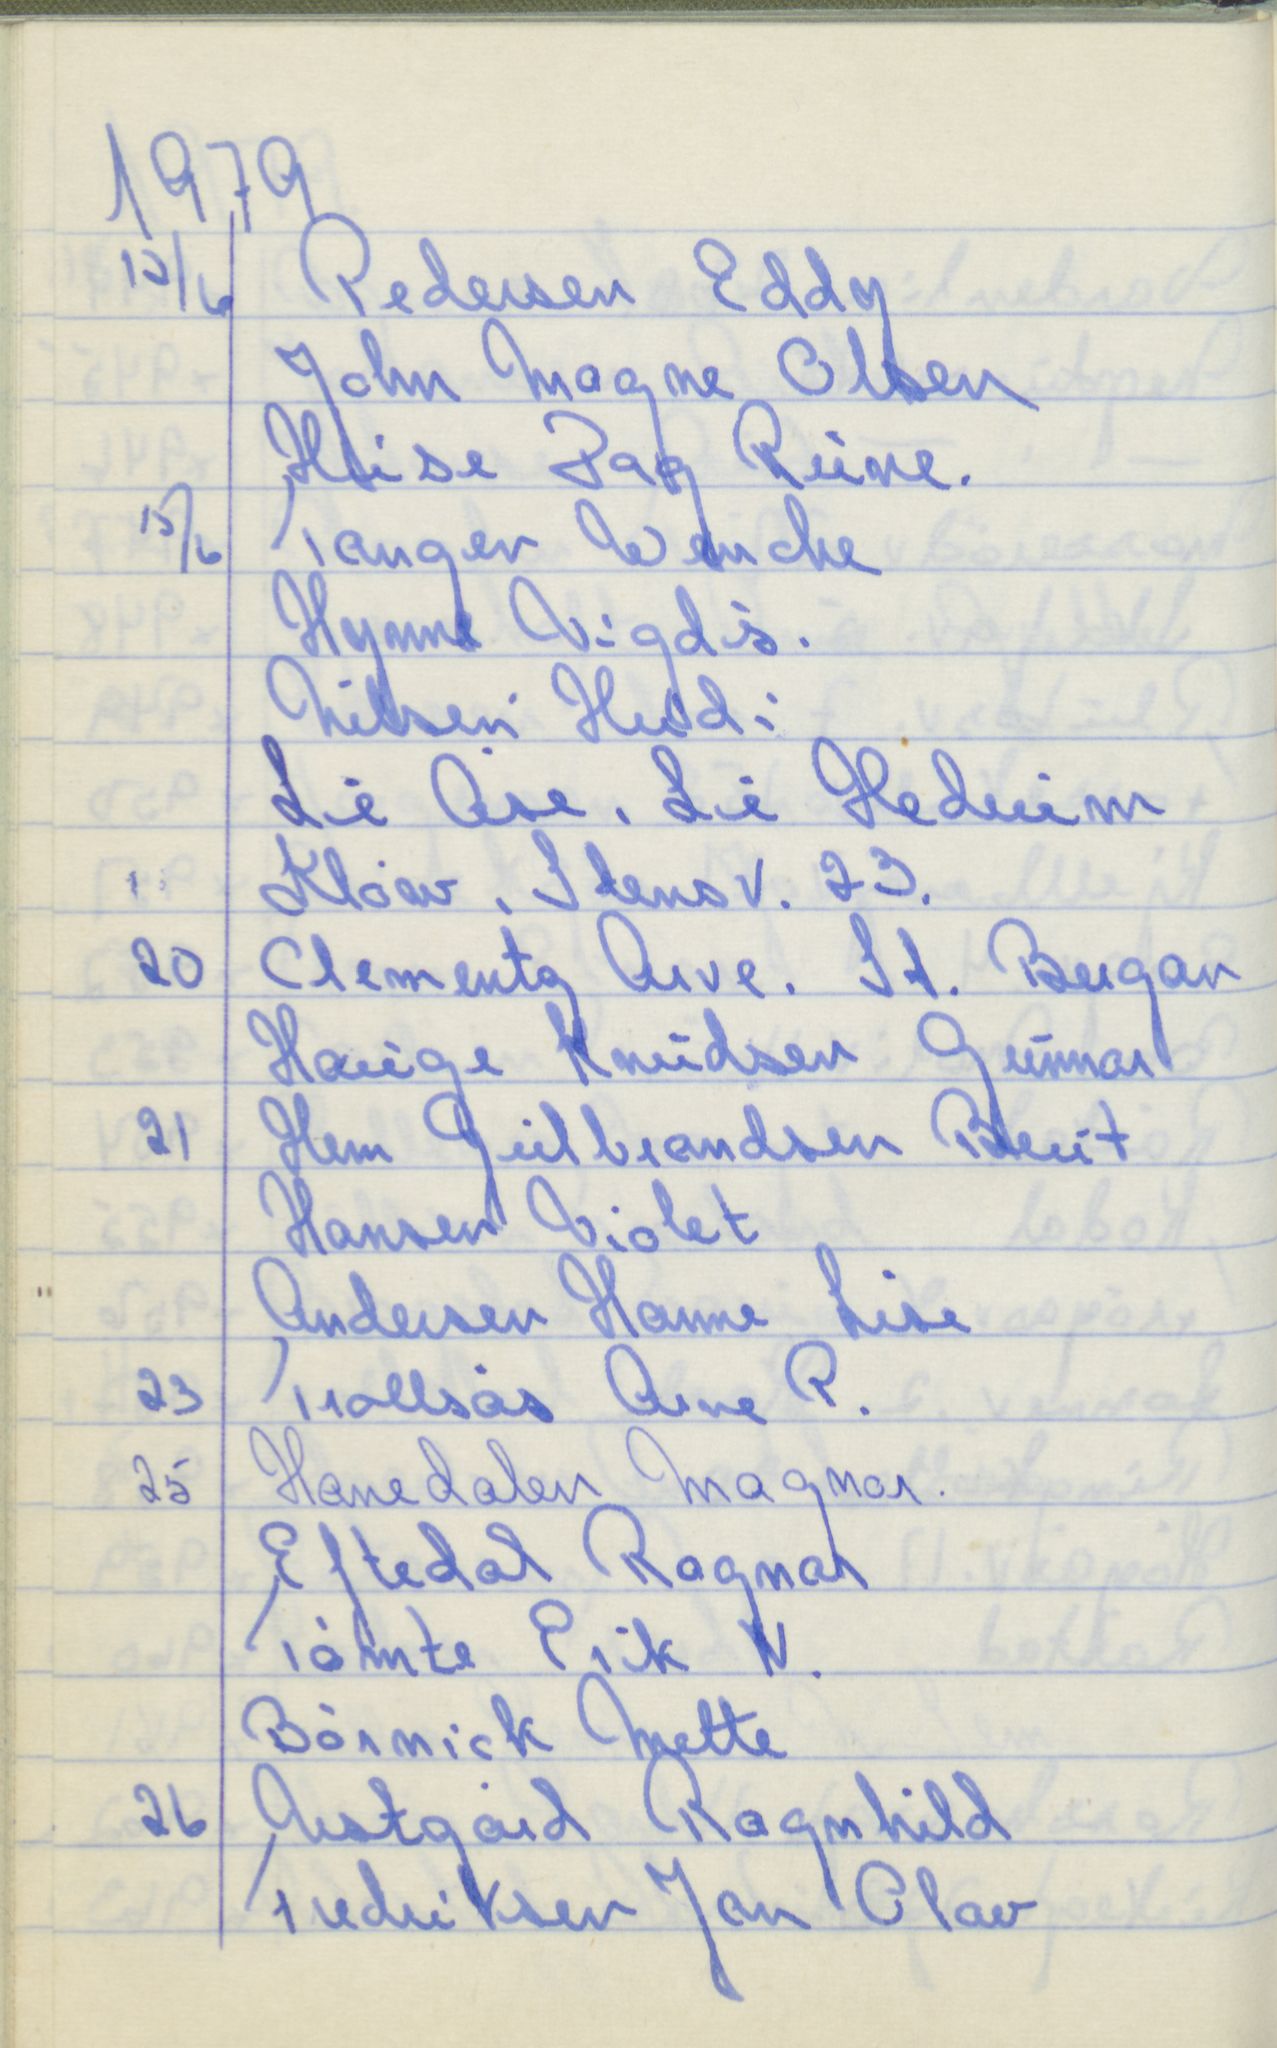 1979
12/6 Pedersen Eddy
John Magne Olsen
Heise Dag Rune.
15/6 Tangen Wenche
Hynne Vigdis.
Nilsen Heidi
Lie Åse. Lie Hedeim
Kløv. Stensv. 23.
20 Clementz Arve. St. Bergan
Hauge Knudsen Gunnar
21 Hem Gulbrandsen Berit
Hansen Violet
Andersen Hanne Lise
23 Trollsås Arne P.
25 Hanedalen Magnar.
Eftedal Ragnar
Tømte Erik W.
Børnick Mette
26 Vestgård Ragnhild
Fredriksen Jan Olav